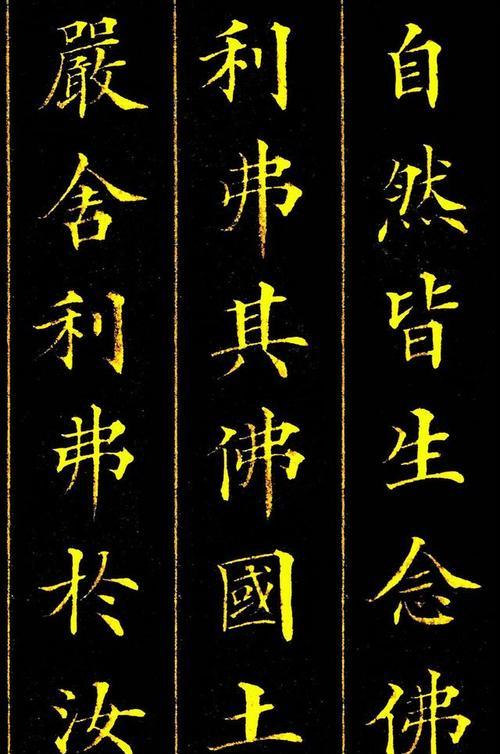 自然皆生念佛
利弗其佛國土
嚴舍利弗於汝